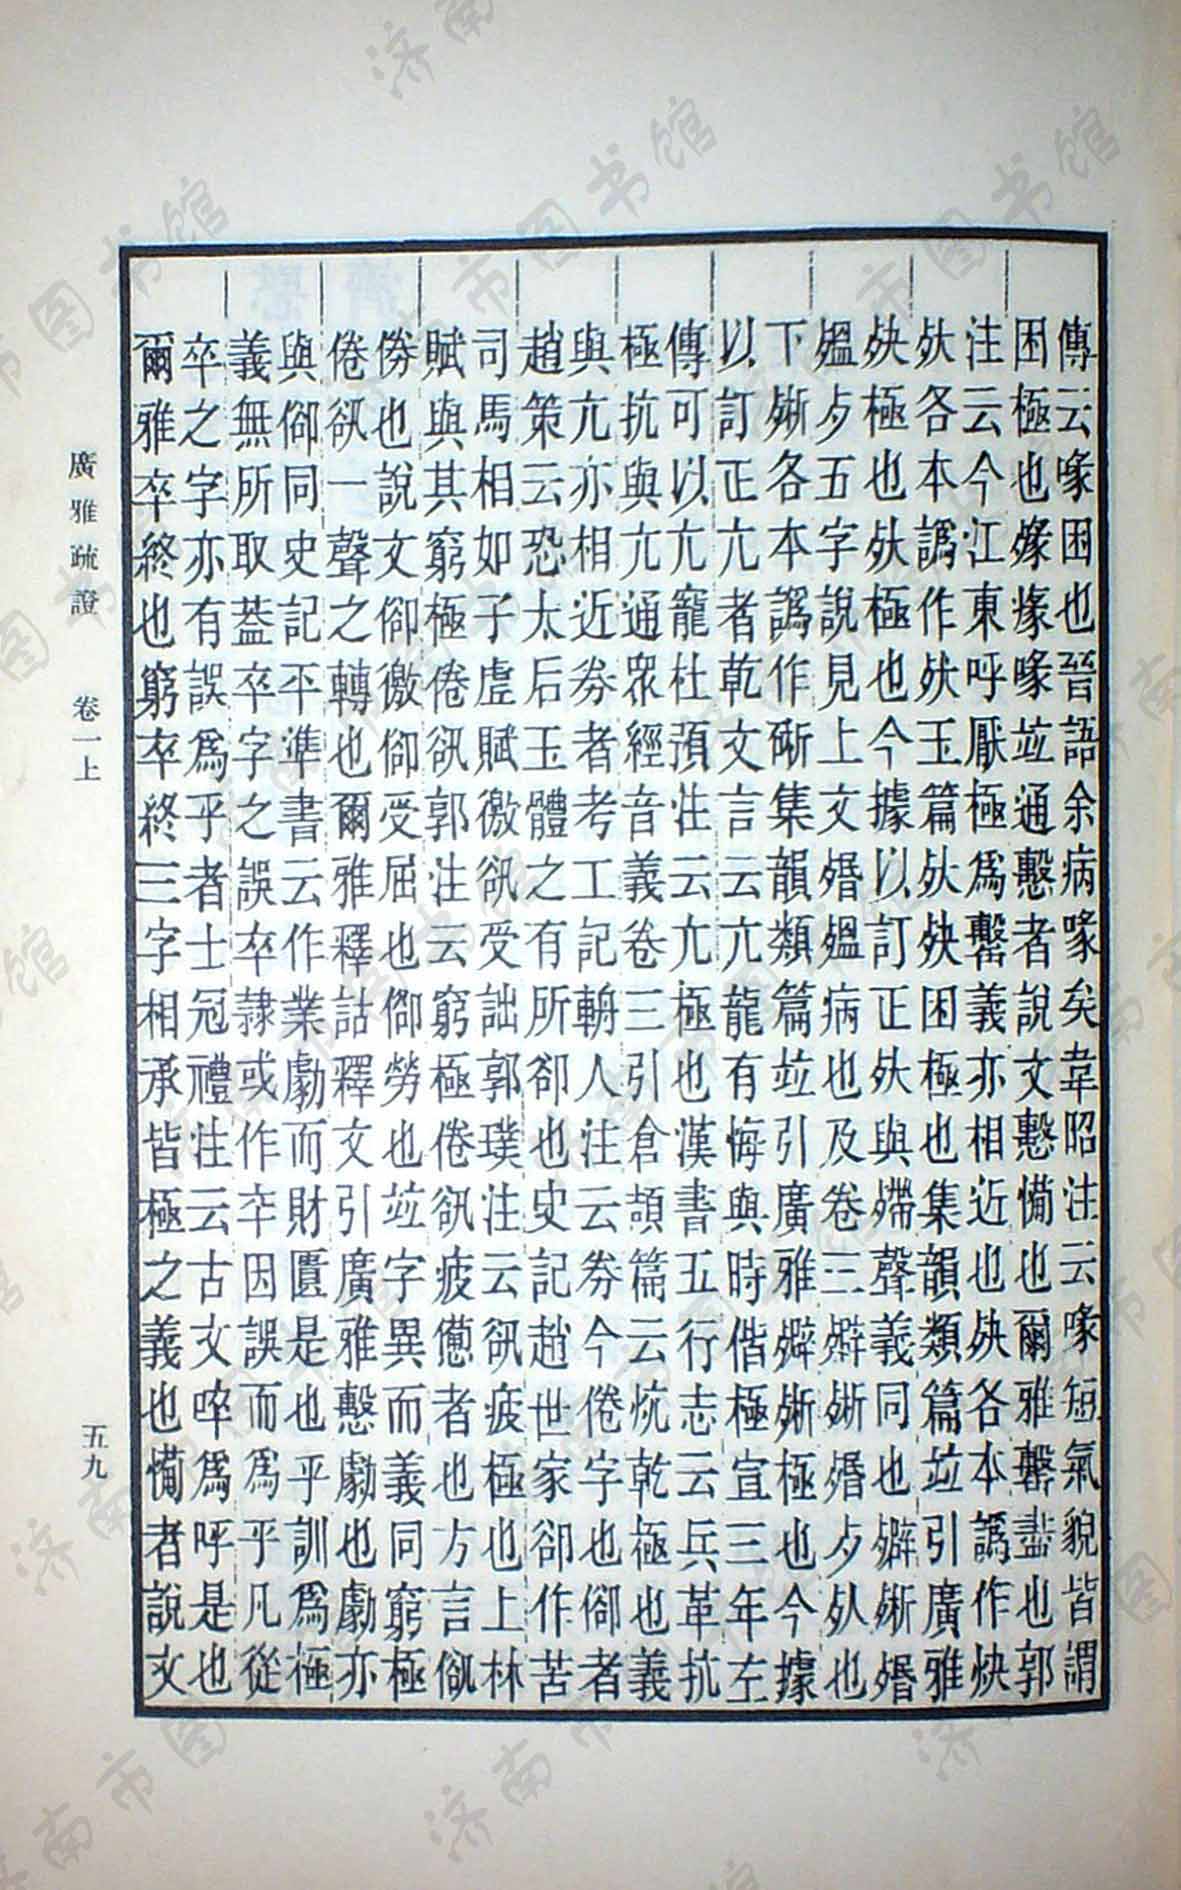 傳云喙困也晉語余病喙矣韋昭注云喙短氣貌皆謂
困極也喙竝通㦣者說文㦣㥶也爾雅罊盡也郭
注云今江東呼厭極爲罊義亦相近也各本譌作
各本譌作玉篇困極也集韻類篇竝引廣雅
極也極也今據以訂正與殢聲義同也殙
殟歺五字說見上文殙殟病也及卷三殙歺也
下各本譌作集韻類篇竝引廣雅極也今據
以訂正亢者乾文言云亢龍有悔與時偕極宣三年左
傳可以亢寵杜預注云亢極也漢書五行志云兵革抗
極抗與亢通眾經音義卷三引倉頡篇云忼乾極也義
與亢亦相近券者考工記輈人注云券今倦字也㕁者
趙策云恐太后玉體之有所郤也史記趙世家郤作苦
司馬相如子虛賦徼㕁受詘郭璞注云㕁疲極也上林
賦與其窮極倦㕁郭注云窮極倦㕁疲憊者也方言㕁
傍也說文御徼御受屈也御勞也竝字異而義同窮極
倦㕁一聲之轉也爾雅釋詁釋文引廣雅㦣劇也劇亦
與御同史記平準書云作業劇而財匱是也乎訓爲極
義無所取葢卒字之誤卒隸或作卆因誤而爲乎凡從
卒之字亦有誤爲乎者士冠禮注云古文啐爲呼是也
爾雅卒終也窮卒終三字相承皆極之義也㥶者說文
廣雅疏證 卷一上
五九